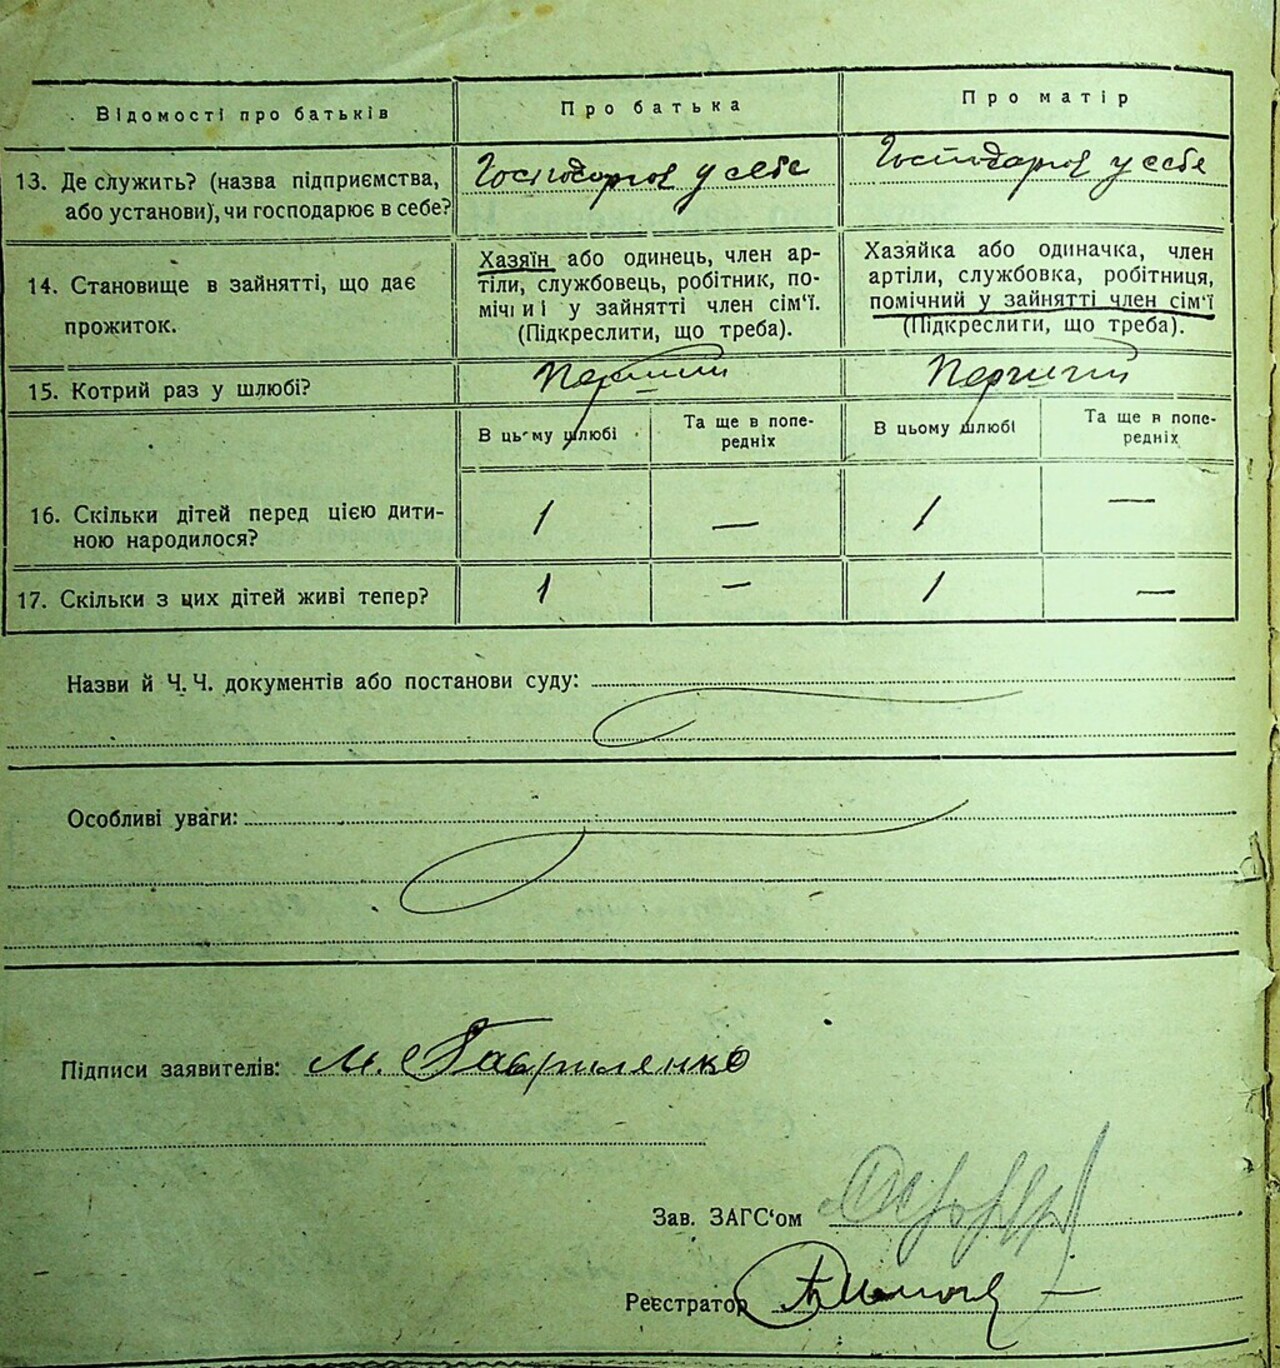 Відомості про батьків Про батька Про матір
13. Де служить? (назва підприємства, або установи), чи господарює в себе?
Господарює у себе Господарює у себе
14. Становище в зайнятті, що дає прожиток.
Хазяїн або одинець, член ар-
тілі, службовець, робітник, по-
мічний у зайнятті член сім'ї.
(Підкреслити, що треба).
Хазяйка або одиначка, член
артіли, службовка, робітниця,
помічний у зайнятті член сім'ї
(Підкреслити, що треба).
15. Котрий раз у шлюбі? Перший Перший
В цьому шлюбі Та ще в попе-
редніх В цьому шлюбі Та ще в попе-
редніх
16. Скільки дітей перед цією дити-
ною народилося? 1 — 1 —
17. Скільки з цих дітей живі тепер? 1 — 1 —
Назви й Ч. Ч. документів або постанови суду:
Особливі уваги:
Підписи заявителів: М. Гавриленко
Зав. ЗАГС'ом
Реєстратор